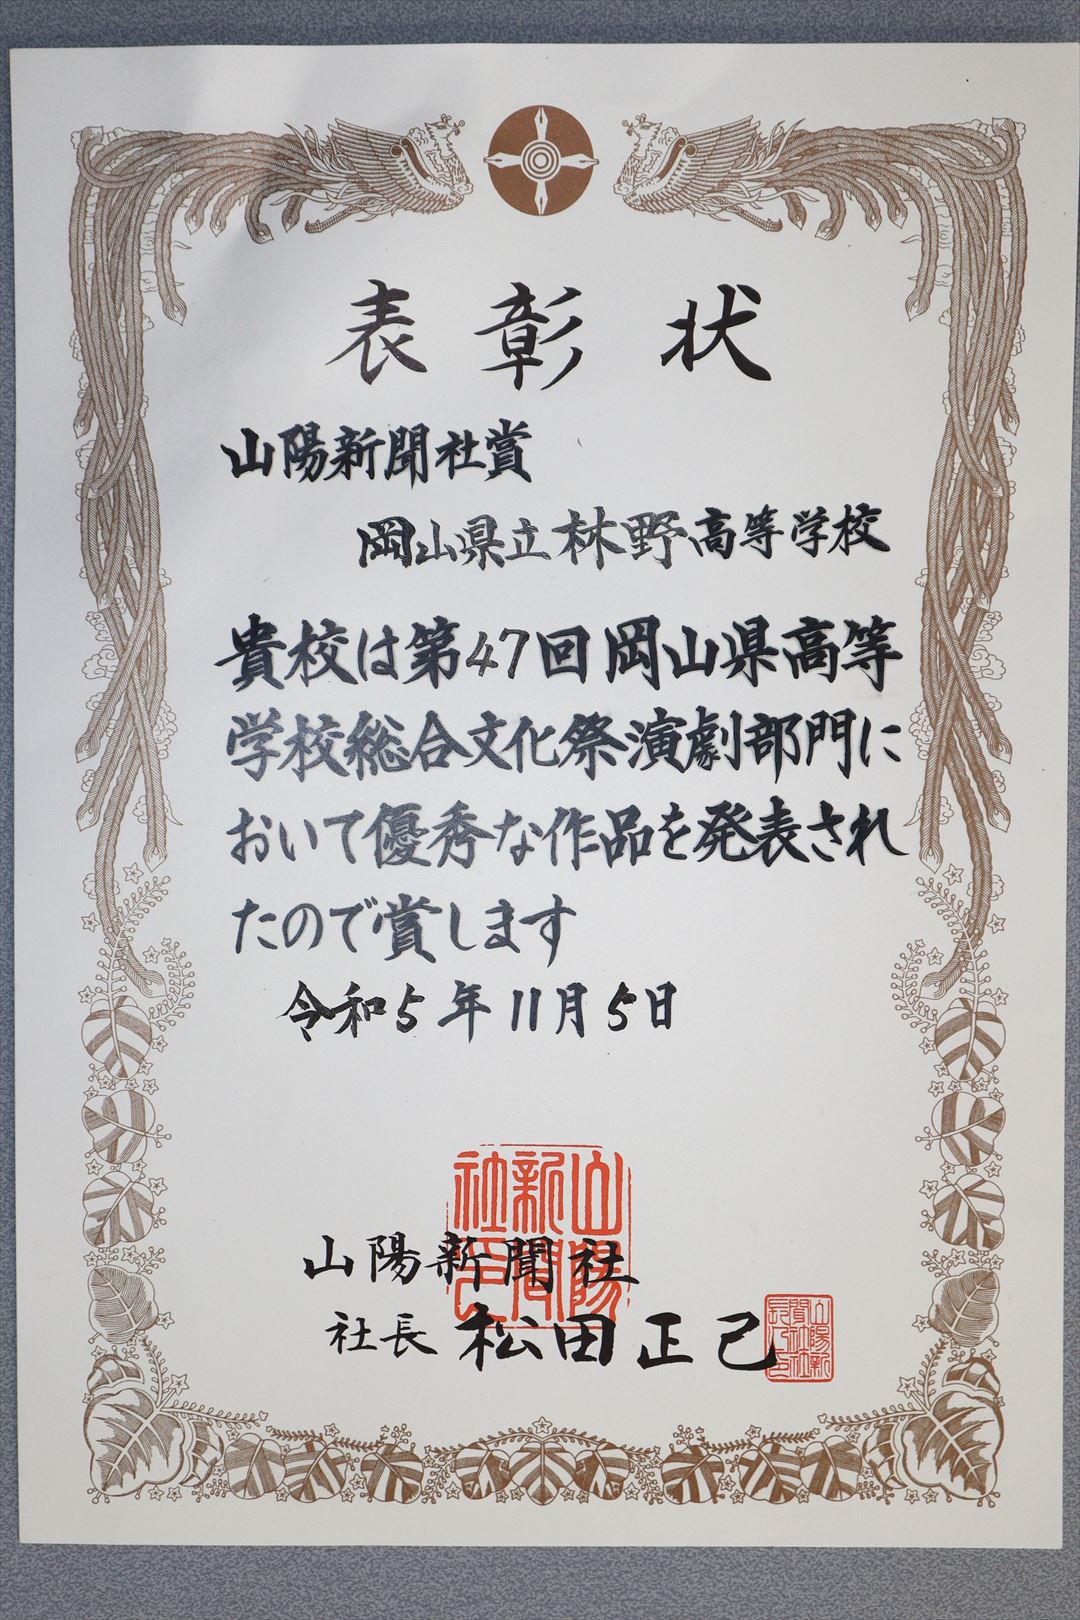 表彰状
山陽新聞社賞
岡山県立林野高等学校
貴校は第47回岡山県高等
学校総合文化祭演劇部門に
おいて優秀な作品を発表され
たので賞します
令和5年11月5日
山陽新聞社
社長 松田正己